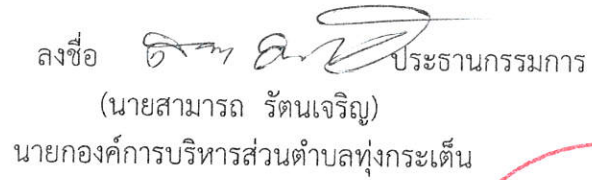 ลงชื่อ ประธานกรรมการ
(นายสามารถ รัตนเจริญ)
นายกองค์การบริหารส่วนตำบลทุ่งกระเต็น